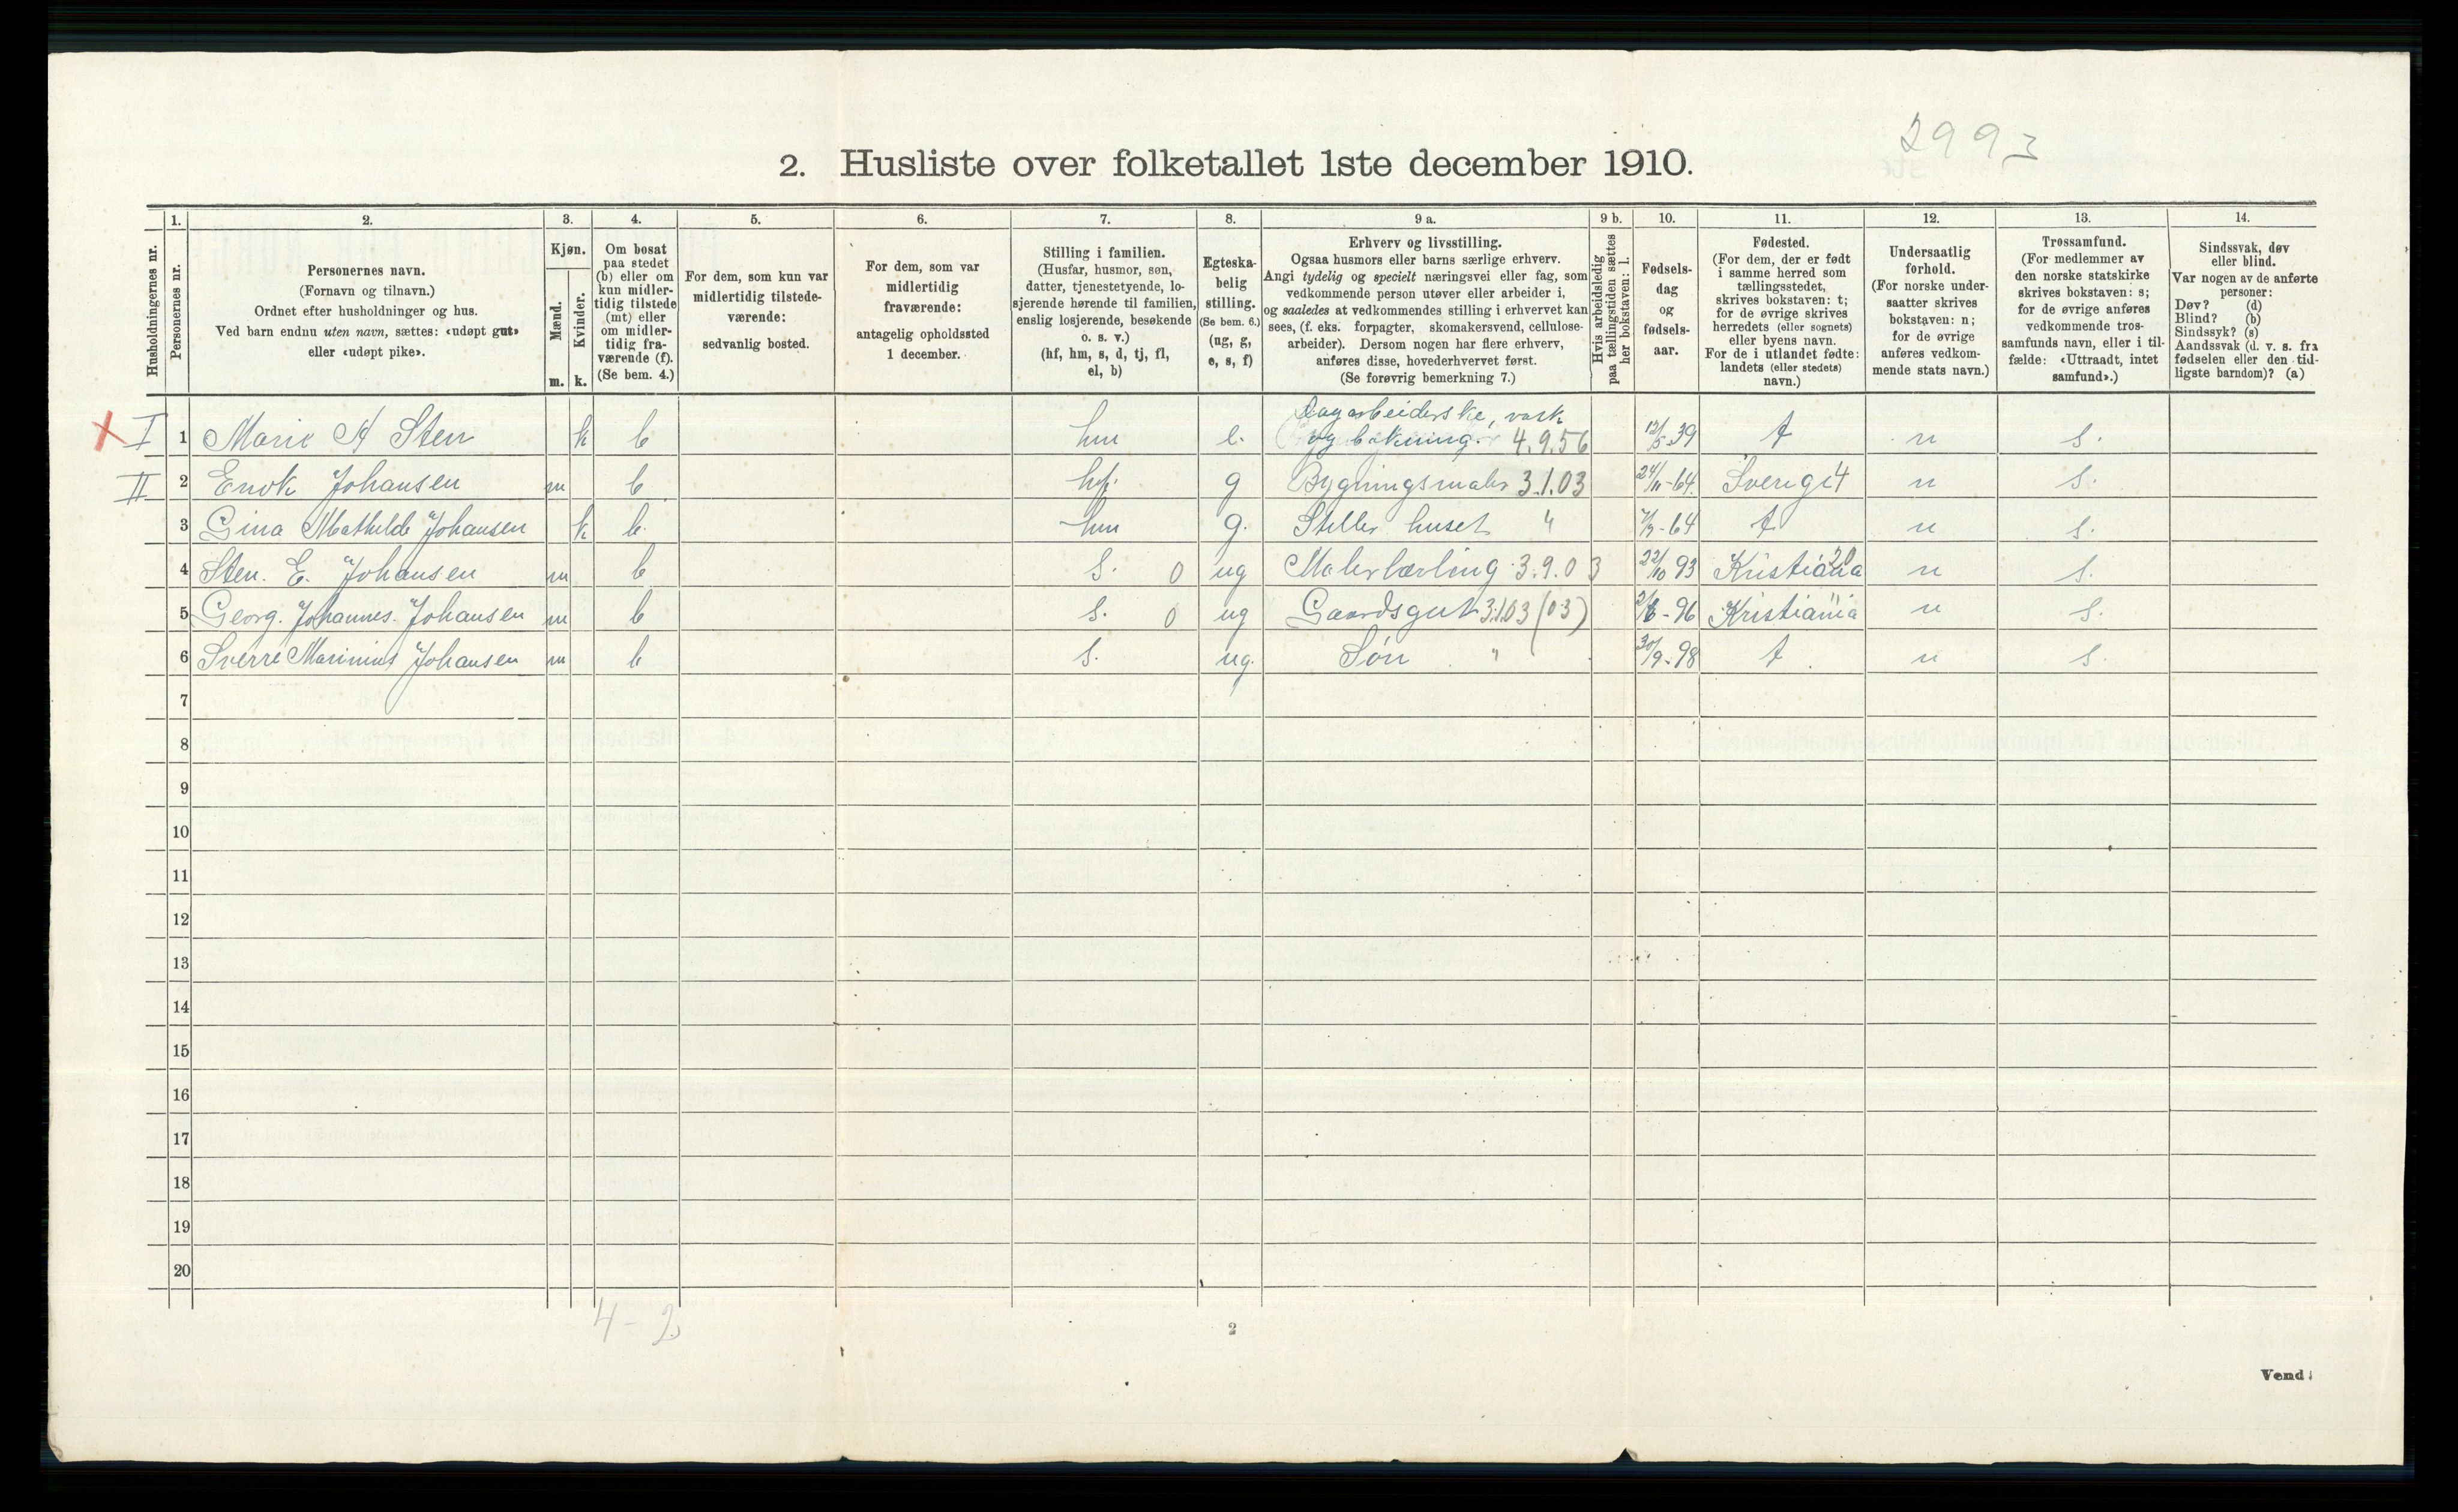 2993
2. Husliste over folketallet 1ste december 1910.
Husholdningernes nr.
1.
Personernes nr.
2.
Personernes navn.
(Fornavn og tilnavn.)
Ordnet efter husholdninger og hus.
Ved barn endnu uten navn, sættes: «udøpt gut»
eller «udøpt pike».
3.
Kjøn.
Mænd.
m.
Kvinder.
k.
4.
Om bosat
paa stedet
(b) eller om
kun midler-
tidig tilstede
(mt) eller
om midler-
tidig fra-
værende (f).
(Se bem. 4.)
5.
For dem, som kun var
midlertidig tilstede-
værende:
sedvanlig bosted.
6.
For dem, som var
midlertidig
fraværende:
antagelig opholdssted
1 december.
7.
Stilling i familien.
(Husfar, husmor, søn,
datter, tjenestetyende, lo-
sjerende hørende til familien,
enslig losjerende, besøkende
o. s. v.)
(hf, hm, s, d, tj, fl,
el, b)
8.
Egteska-
belig
stilling.
(Se bem. 6.)
(ug, g,
e, s, f)
9 a.
Erhverv og livsstilling.
Ogsaa husmors eller barns særlige erhverv.
Angi tydelig og specielt næringsvei eller fag, som
vedkommende person utøver eller arbeider i,
og saaledes at vedkommendes stilling i erhvervet kan
sees, (f. eks. forpagter, skomakersvend, cellulose-
arbeider). Dersom nogen har flere erhverv,
anføres disse, hovederhvervet først.
(Se forøvrig bemerkning 7.)
9 b.
Hvis arbeidsledig
paa tællingstiden sættes
her bokstaven: l.
10.
Fødsels-
dag
og
fødsels-
aar.
11.
Fødested.
(For dem, der er født
i samme herred som
tællingsstedet,
skrives bokstaven: t;
for de øvrige skrives
herredets (eller sognets)
eller byens navn.
For de i utlandet fødte:
landets (eller stedets)
navn.)
12.
Undersaatlig
forhold.
(For norske under-
saatter skrives
bokstaven: n;
for de øvrige
anføres vedkom-
mende stats navn.)
13.
Trossamfund.
(For medlemmer av
den norske statskirke
skrives bokstaven: s;
for de øvrige anføres
vedkommende tros-
samfunds navn, eller i til-
fælde: «Uttraadt, intet
samfund».)
14.
Sindssvak, døv
eller blind.
Var nogen av de anførte
personer:
Døv? (d)
Blind? (b)
Sindssyk? (s)
Aandssvak (d. v. s. fra
fødselen eller den tid-
ligste barndom)? (a)
Dagarbeiderske, vask
X I 1 Marie A Sten k b hm e. og bakning. 4.9.56 12/5 39 t n s.
II 2 Enok Johansen m b hf. g Bygningsmaler 3.1.03 24/11-64. Sverige 4 n s.
3 Gina Mathilde Johansen k b. hm g. Steller huset " -64 t n s.
4 Sten. E. Johansen m b s. 0 ug Malerlærling 3.9.03 22/10 93 Kristiania 20 n s.
5 Georg. Johannes. Johansen m b s. 0 ug Gaardsgut 3.1.03 (03) 2/6-96 Kristiania " n s.
6 Sverre Marinius Johansen m b s. ug. Søn " 30/9-98 t n s.
7
8
9
10
11
12
13
14
15
16
17
18
19
20
4-2
2
Vend!